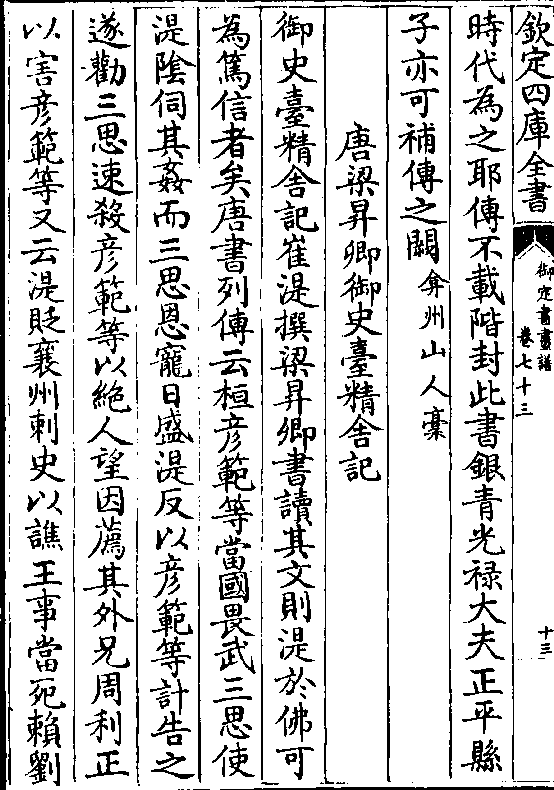 欽定四庫全書
御定書畫譜
卷七十三
十三
時代為之耶傳不載階封此書銀青光禄大夫正平縣
子亦可補傳之闕弇州山人稾
唐梁昇卿御史臺精舍記
御史臺精舍記崔湜撰梁昇卿書讀其文則湜於佛可
為篤信者矣唐書列傳云桓彦範等當國畏武三思使
湜陰伺其姦而三思恩寵日盛湜反以彦範等計告之
遂勸三思速殺彦範等以絶人望因薦其外兄周利正
以害彦範等又云湜貶襄州刺史以譙王事當死賴劉